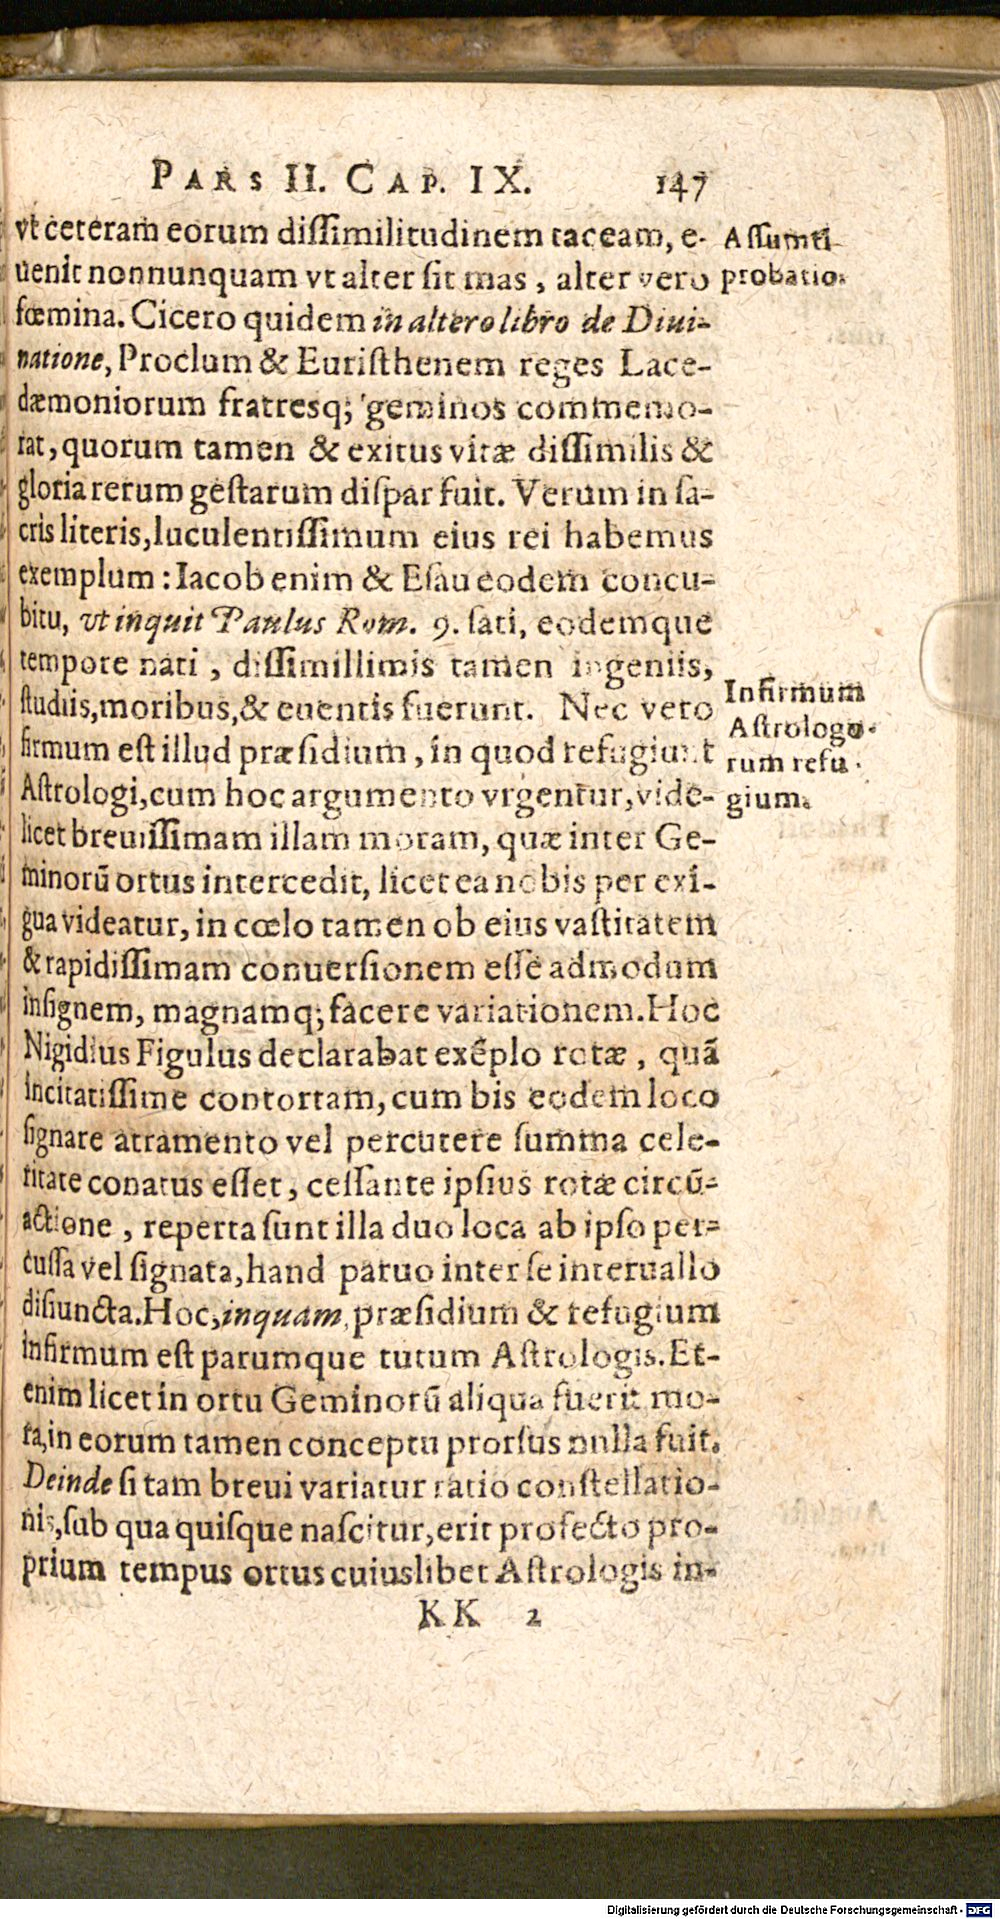 PARS II. CAP. IX. 147
vt ceteram eorum dissimilitudinem taceam, e-
uenit nonnunquam vt alter sit mas, alter vero
fœmina. Cicero quidem in altero libro de Diui-
natione, Proclum & Euristhenem reges Lace-
dæmoniorum fratresq; geminos commemo-
rat, quorum tamen & exitus vitæ dissimilis &
gloria rerum gestarum dispar fuit. Verum in sa-
cris literis, luculentissimum eius rei habemus
exemplum: Iacob enim & Esau eodem concu-
bitu, vt inquit Paulus Rom. 9. sati, eodemque
tempore nati, dissimillimis tamen ingeniis,
studiis, moribus, & euentis fuerunt. Nec vero
firmum est illud præsidium, in quod refugiunt
Astrologi, cum hoc argumento vrgentur, vide-
licet breuissimam illam moram, quæ inter Ge-
minorũ ortus intercedit, licet ea nobis per exi-
gua videatur, in cœlo tamen ob eius vastitatem
& rapidissimam conuersionem esse admodum
insignem, magnamq; facere variationem. Hoc
Nigidius Figulus declarabat exẽplo rotæ, quã
incitatissime contortam, cum bis eodem loco
signare atramento vel percutere summa cele-
ritate conatus esset, cessante ipsius rotæ circũ-
actione, reperta sunt illa duo loca ab ipso per-
cussa vel signata, hand paruo inter se interuallo
disiuncta. Hoc, inquam, præsidium & refugium
infirmum est parumque tutum Astrologis. Et-
enim licet in ortu Geminorũ aliqua fuerit mo-
ra, in eorum tamen conceptu prorsus nulla fuit.
Deinde si tam breui variatur ratio constellatio-
nis, sub qua quisque nascitur, erit profecto pro-
prium tempus ortus cuiuslibet Astrologis in-
KK 2
Assumti
probatio.
Infirmum
Astrologo-
rum refu-
gium.
Digitalisierung gefördert durch die Deutsche Forschungsgemeinschaft - DFG